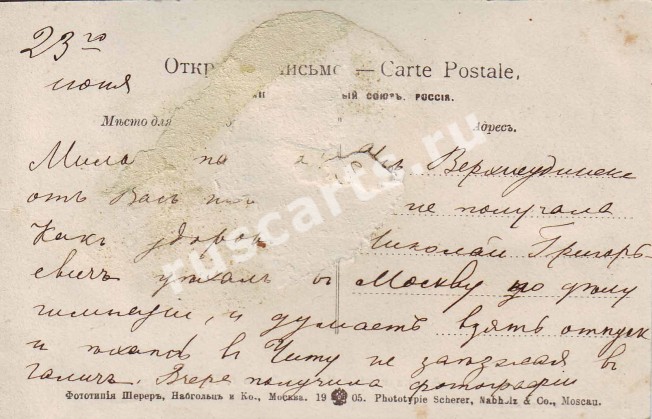 23го
июня
Откр исьмо — Carte Postale,
ый союзъ. РОССІЯ.
Мѣсто для Адресъ.
Мила по Верхнеудинске
отъ Васъ не получала
Какъ здоров Николай Григорь-
евичъ уѣхалъ въ Москву по дѣлу
гимназіи, и думаетъ взять отпуск
и ѣхать в Читу не заѣзжая в
Галичъ. Вчера получила фотографіи
Фототипія Шереръ, Набгольцъ и Ко., Москва. 19 05. Phototypie Scherer, Nabholz & Co., Moscau.
ruscarts.ru